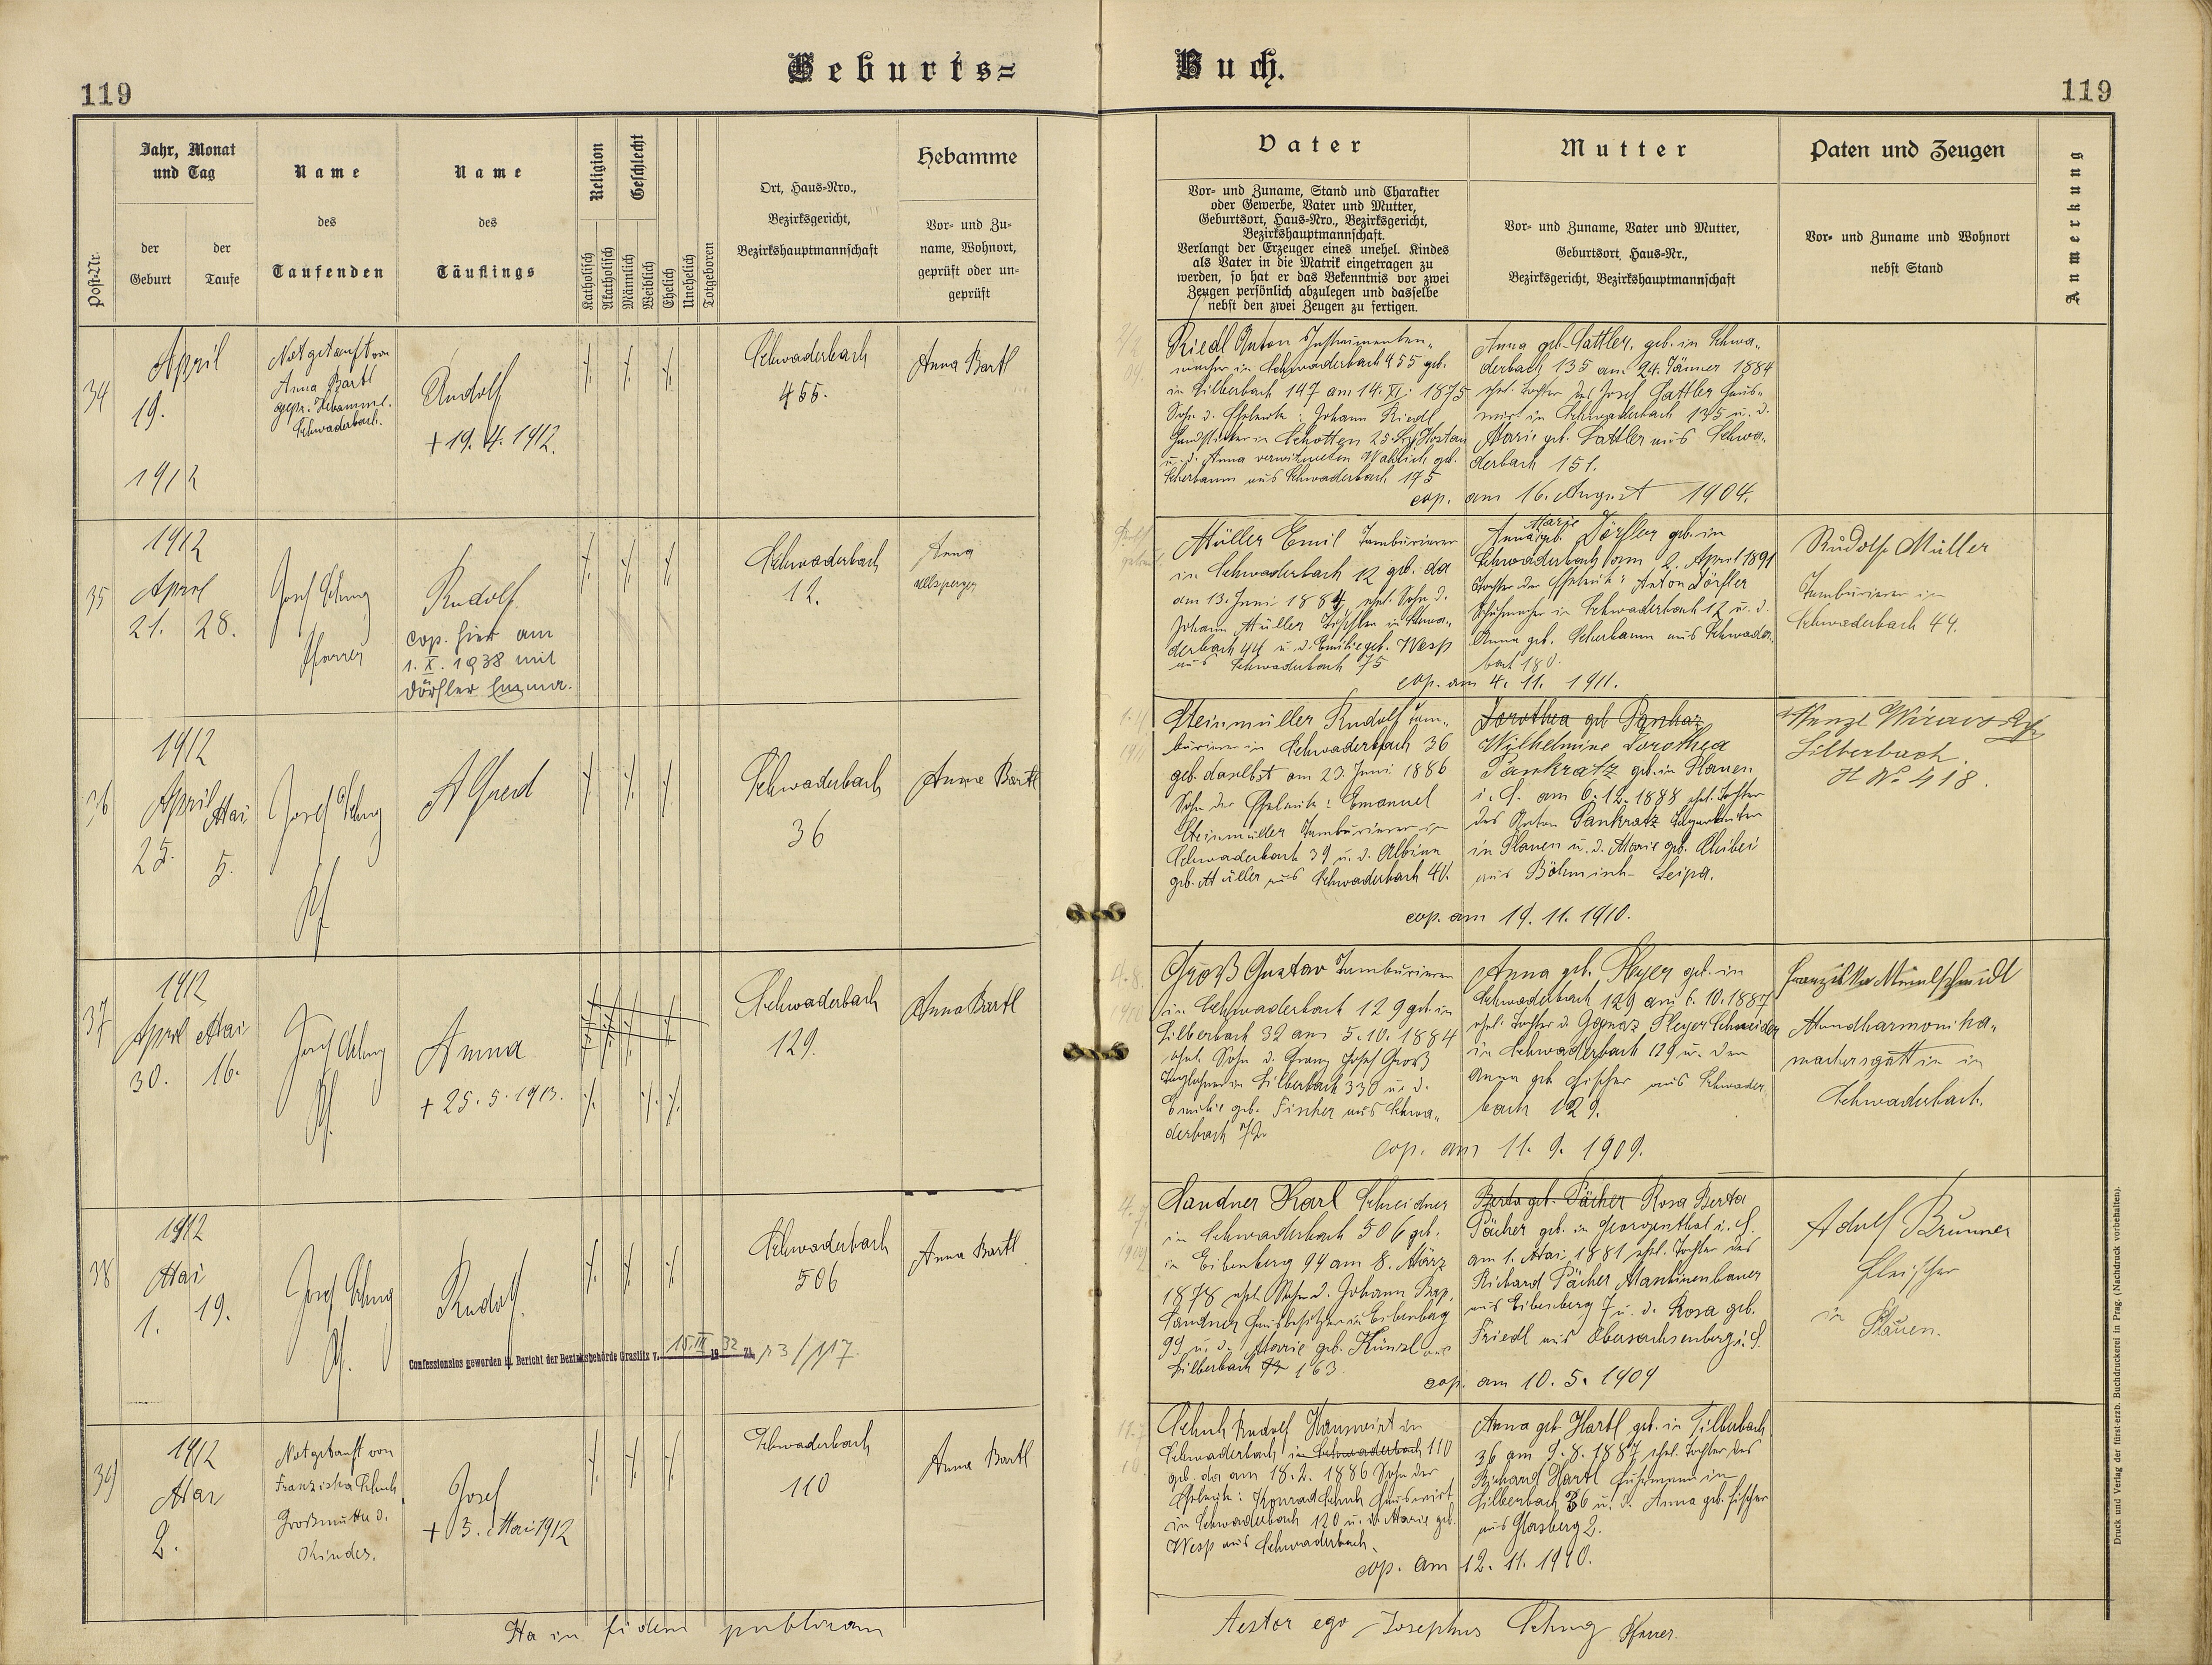 Geburts=
Buch.
119
119
Post-Nr.
Jahr, Monat
und Tag
der
Geburt
der
Taufe
Name
des
Taufenden
Name
des
Täuflings
Religion
Katholisch
Akatholisch
Geschlecht
Männlich
Weiblich
Ehelich
Unehelich
Totgeboren
Ort, Haus-Nro.,
Bezirksgericht,
Bezirkshauptmannschaft
Hebamme
Vor- und Zu-
name, Wohnort,
geprüft oder un-
geprüft
Vater
Vor- und Zuname, Stand und Charakter
oder Gewerbe, Vater und Mutter,
Geburtsort, Haus-Nro., Bezirksgericht,
Bezirkshauptmannschaft.
Verlangt der Erzeuger eines unehel. Kindes
als Vater in die Matrik eingetragen zu
werden, so hat er das Bekenntnis vor zwei
Zeugen persönlich abzulegen und dasselbe
nebst den zwei Zeugen zu fertigen.
Mutter
Vor- und Zuname, Vater und Mutter,
Geburtsort, Haus-Nr.,
Bezirksgericht, Bezirkshauptmannschaft
Paten und Zeugen
Vor- und Zuname und Wohnort
nebst Stand
Anmerkung
34
April
19.
1912
Notgetauft von
Anna Bartl
gepr. Hebamme.
Schwaderbach.
Rudolf
+ 19. 4. 1912.
Schwaderbach
455.
Anna Bartl
Riedl Anton Instrumenten-
macher in Schwaderbach 455 geb.
in Silberbach 147 am 14. XI. 1875
Sohn d. Eheleute: Johann Riedl
in Schotten 25 Hostau
u. d. Anna verwitweten geb.
Scherbaum aus Schwaderbach 175
Anna geb. Sattler, geb. in Schwa-
derbach 135 am 24. Jänner 1884
ehel. Tochter des Josef Sattler Haus-
wirt in Schwaderbach 135 u. d.
Marie geb. Sattler aus Schwa-
derbach 151.
cop. am 16. August 1904.
35
1912
April
21. 28.
Josef
Pfarrer
Rudolf
cop. hier am
1. X. 1938 mit
Dörfler Emma.
Schwaderbach
12.
Anna
Müller Emil Tambourierer
in Schwaderbach 12 geb. da
am 13. Juni 1884, ehel. Sohn d.
Johann Müller Tischler in Schwa-
derbach 44 u. d. Emilie geb. Wesp
aus Schwaderbach 75
Anna Marie geb. Dörfler geb. in
Schwaderbach am 2. April 1891
Tochter der Eheleute: Anton Dörfler
Schuhmacher in Schwaderbach 12 u. d.
Anna geb. Scherbaum aus Schwader-
bach 180.
cop. am 4. 11. 1911.
Rudolf Müller
Tambourierer in
Schwaderbach 44.
36
1912
April Mai
25. 5.
Josef
Pf.
Alfred
Schwaderbach
36
Anna Bartl
Steinmüller Rudolf Tam-
bourierer in Schwaderbach 36
geb. daselbst am 23. Juni 1886
Sohn der Eheleute: Emanuel
Steinmüller Tambourierer in
Schwaderbach 39 u. d. Albine
geb. Müller aus Schwaderbach 40.
Dorothea geb. Pankraz
Wilhelmine Dorothea
Pankratz geb. in Plauen
i. S. am 6. 12. 1888 ehel. Tochter
des Anton Pankratz
in Plauen u. d. Marie geb.
aus Böhmisch-Leipa.
cop. am 19. 11. 1910.
Wenzl
Silberbach
H No 418.
37
1912
April Mai
30. 16.
Josef
Pf.
Anna
+ 25. 5. 1913.
Schwaderbach
129.
Anna Bartl
Groß Gustav Tambourierer
in Schwaderbach 129 geb. in
Silberbach 32 am 5. 10. 1884
ehel. Sohn d. Franz Josef Groß
Taglöhner in Silberbach 330 u. d.
Emilie geb. Fischer aus Schwa-
derbach 72.
Anna geb. Pleyer geb. in
Schwaderbach 129 am 6. 10. 1887
ehel. Tochter d. Ignaz Pleyer Schneider
in Schwaderbach 129 u. der
Anna geb. Fischer aus Schwader-
bach 129.
cop. am 11. 9. 1909.
Franziska
Mundharmonika-
machersgattin in
Schwaderbach.
38
1912
Mai
1. 19.
Josef
Pf.
Rudolf.
Confessionslos geworden lt. Bericht der Bezirksbehörde Graslitz v. 15. III 1932 Zl.
Schwaderbach
506
Anna Bartl
Sandner Karl Schneidner
in Schwaderbach 506 geb.
in Eibenberg 94 am 8. März
1878 ehel. Sohn d. Johann Bap.
Sandner Hausbesitzer in Eibenberg
99 u. d. Marie geb. Künzl aus
Silberbach 163
Berta geb. Pächer Rosa Berta
Pächer geb. in Georgenthal i. S.
am 1. Mai 1881 ehel. Tochter des
Richard Pächer Maschinenbauer
aus Eibenberg 7 u. d. Rosa geb.
Friedl aus Obersachsenberg i. S.
cop. am 10. 5. 1909
Adolf Brunner
Fleischer
in
Plauen.
39
1912
Mai
2.
Notgetauft von
Franziska Schuh
Großmutter d.
Kindes.
Josef
+ 3. Mai 1912
Schwaderbach
110
Anna Bartl
Schuh Rudolf Hauswirt in
Schwaderbach in Schwaderbach 110
geb. da am 18. 2. 1886 Sohn der
Eheleute: Konrad Schuh Hauswirt
in Schwaderbach 120 u. d. Marie geb.
Wesp aus Schwaderbach.
Anna geb. Hartl geb. in Silberbach
36 am 9. 8. 1887 ehel. Tochter des
Richard Hartl Fuhrmann in
Silberbach 36 u. d. Anna geb. Fischer
aus Glasberg 2.
cop. am 12. 11. 1910.
Ita in fidem publicam
Testor ego Josephus Pfarrer.
Druck und Verlag der fürst-erzb. Buchdruckerei in Prag. (Nachdruck vorbehalten).